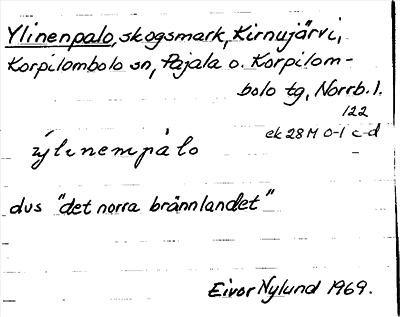 Ylinenpalo, skogsmark, Kirnujärvi,
Korpilombolo sn, Pajala o. Korpilom-
bolo tg, Norrb. l.
122
ek 28 M 0-1 c-d
ýlinempàlo
dvs "det norra brännlandet"
Eivor Nylund 1969.